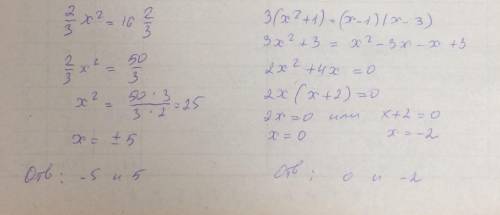 2/3 x² = 16 2/3
2/3 x² = 50/3
x² = 50 · 3 / 3 · 2 = 25
x = ± 5
Отв: -5 и 5
3(x²+1) = (x-1)(x-3)
3x² + 3 = x² - 3x - x + 3
2x² + 4x = 0
2x(x+2) = 0
2x = 0 или x+2 = 0
x = 0 x = -2
Отв: 0 и -2